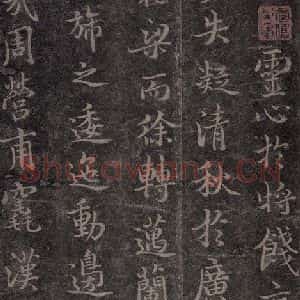 靈心於將餞
失疑清秋於廣
梁而徐轉邁蘭
旆之委迤動邊
周營甫漢
Shufawang.CN